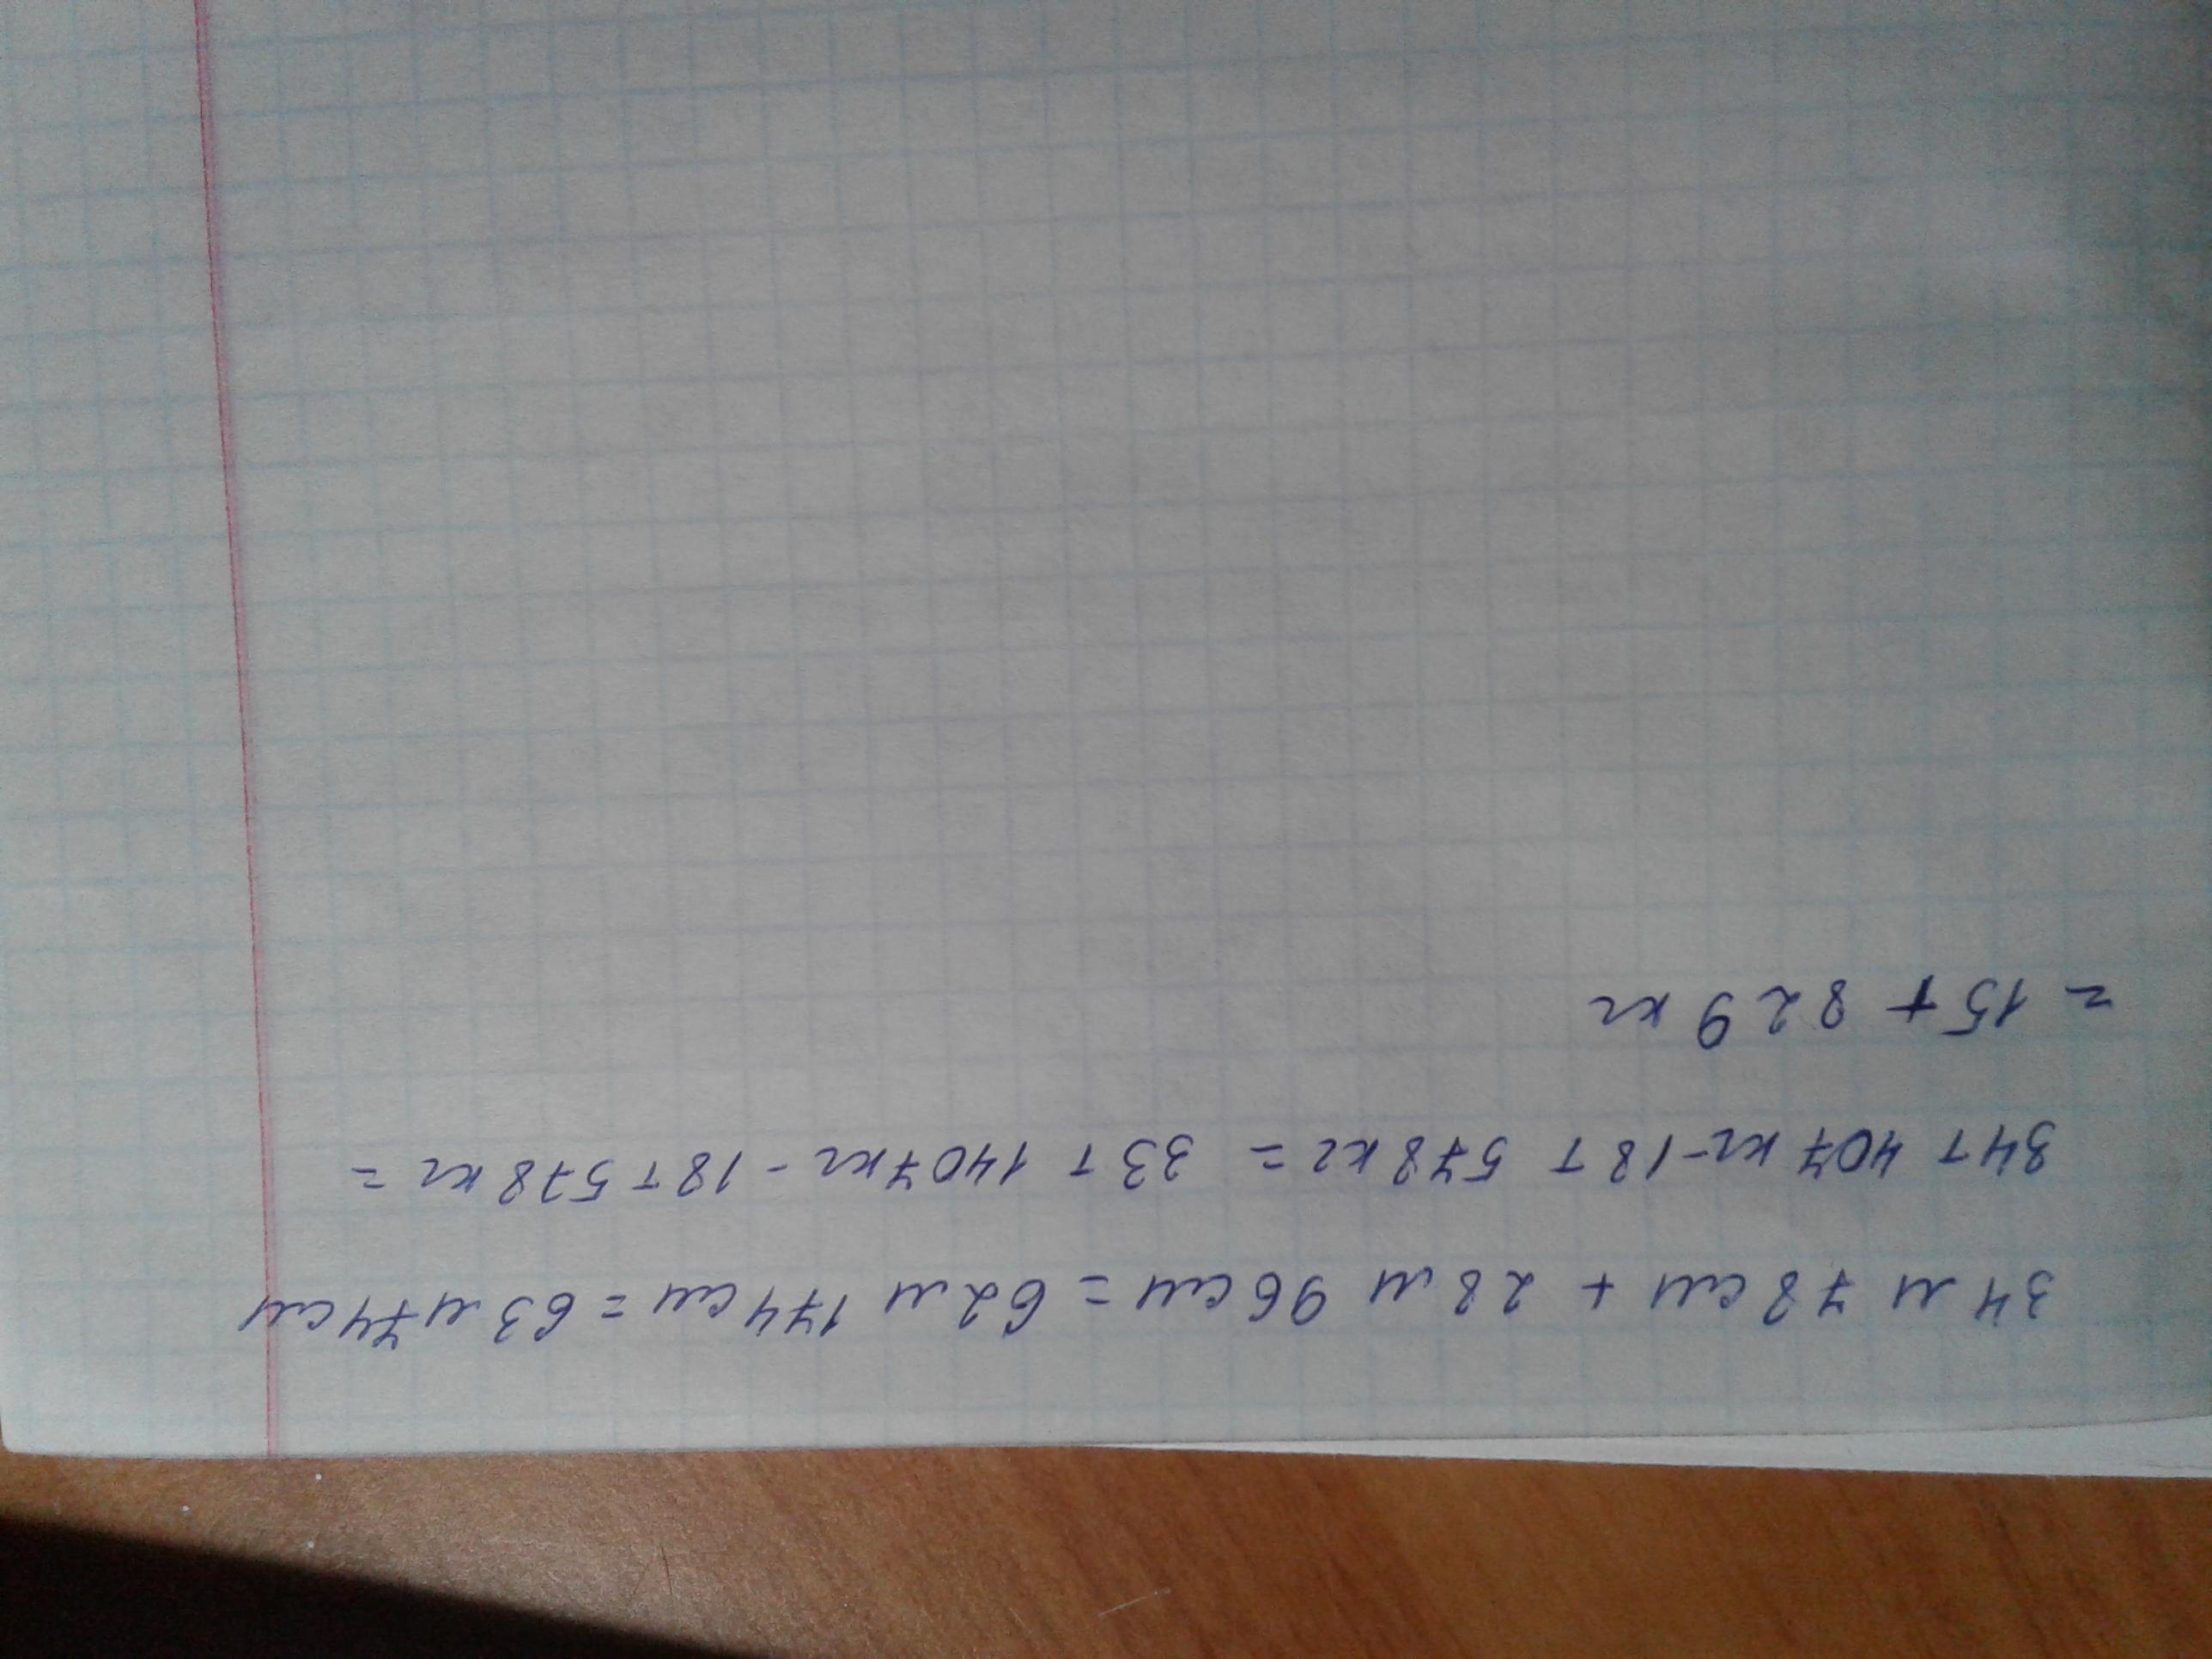 34 м 78 см + 28 м 96 см = 62 м 174 см = 63 м 74 см
34 т 407 кг - 18 т 578 кг = 33 т 1407 кг - 18 т 578 кг =
= 15 т 829 кг